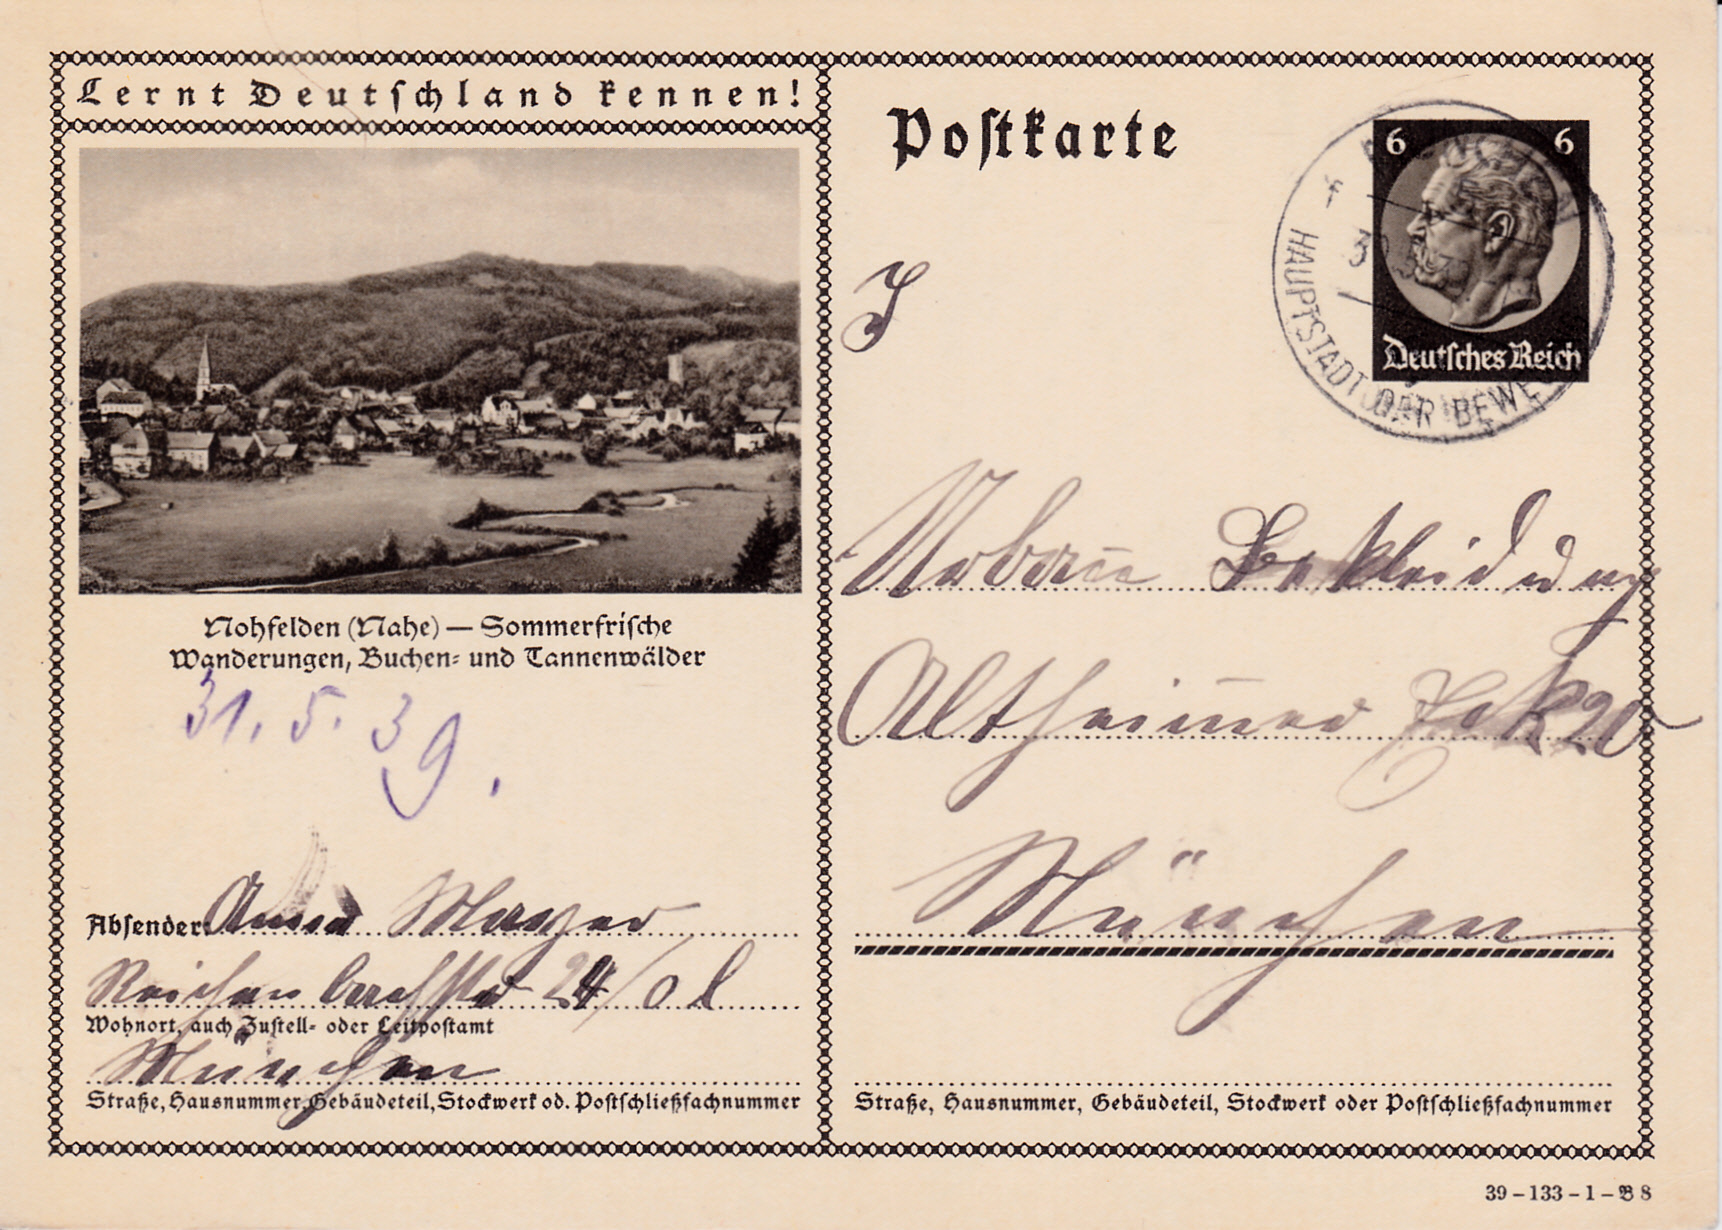 Lernt Deutschland kennen!
Nohfelden (Nahe) — Sommerfrische
Wanderungen, Buchen- und Tannenwälder
31. 5. 39.
Absender: Anna Mayer
Reichenbachstr 24/0 l
Wohnort, auch Zustell- oder Leitpostamt
München
Straße, Hausnummer, Gebäudeteil, Stockwerk od. Postschließfachnummer
Postkarte
6 6
Deutsches Reich
HAUPTSTADT DER BEWE
Bekleidung
Altheimer Eck 20
München
Straße, Hausnummer, Gebäudeteil, Stockwerk oder Postschließfachnummer
39-133-1-B 8